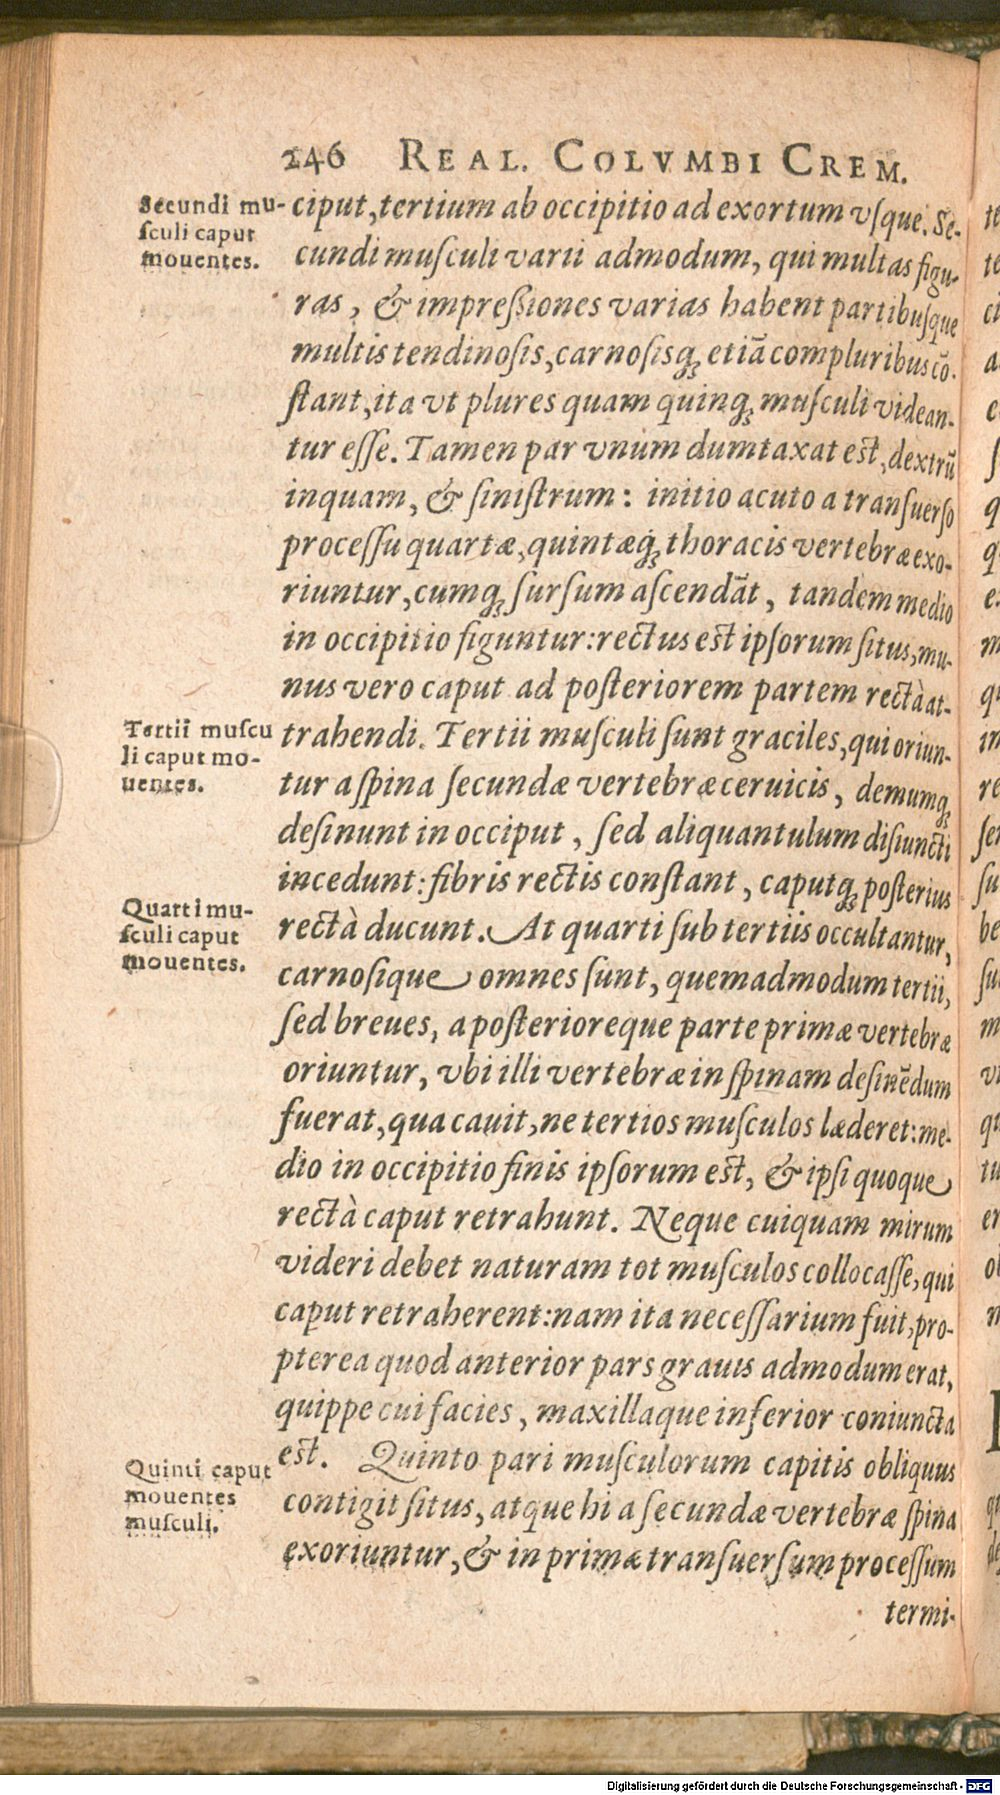 246 REAL. COLVMBI CREM.
Secundi mu-
sculi caput
mouentes.
ciput, tertium ab occipitio ad exortum vſque. Se-
cundi muſculi varii admodum, qui multas figu-
ras, & impreſſiones varias habent partibuſque
multis tendinoſis, carnoſisq; etiā compluribus cō-
ſtant, ita vt plures quam quinq; muſculi videan-
tur eſſe. Tamen par vnum dumtaxat eſt, dextrū
inquam, & ſiniſtrum: initio acuto a tranſuerſo
proceſſu quartæ, quintæq; thoracis vertebræ exo-
riuntur, cumq; ſurſum aſcendāt, tandem medio
in occipitio figuntur: rectus eſt ipſorum ſitus, mu-
nus vero caput ad poſteriorem partem rectà at-
Tertii muſcu
li caput mo-
uentes.
trahendi. Tertii muſculi ſunt graciles, qui oriun-
tur a ſpina ſecundæ vertebræ ceruicis, demumq;
deſinunt in occiput, ſed aliquantulum diſiuncti
incedunt: fibris rectis conſtant, caputq; poſterius
Quarti mu-
ſculi caput
mouentes.
rectà ducunt. At quarti ſub tertiis occultantur,
carnoſique omnes ſunt, quemadmodum tertii,
ſed breues, a poſterioreque parte primæ vertebræ
oriuntur, vbi illi vertebræ in ſpinam deſinēdum
fuerat, qua cauit, ne tertios muſculos læderet: me-
dio in occipitio finis ipſorum eſt, & ipſi quoque
rectà caput retrahunt. Neque cuiquam mirum
videri debet naturam tot muſculos collocaſſe, qui
caput retraherent: nam ita neceſſarium fuit, pro-
pterea quod anterior pars grauis admodum erat,
quippe cui facies, maxillaque inferior coniuncta
Quinti caput
mouentes
muſculi.
eſt. Quinto pari muſculorum capitis obliquus
contigit ſitus, atque hi a ſecundæ vertebræ ſpina
exoriuntur, & in primæ tranſuerſum proceſſum
termi-
Digitalisierung gefördert durch die Deutsche Forschungsgemeinschaft - DFG